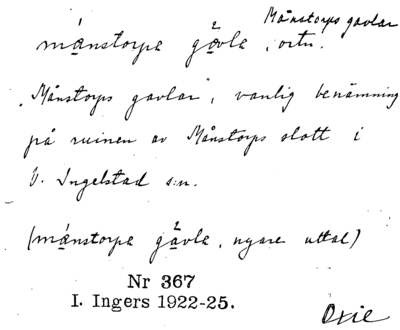 Månstorps gavlar
mánstorpa gåvla, ortn.
"Månstorps gavlar", vanlig benämning
på ruinen av Månstorps slott i
V. Ingelstad s:n.
(mánstorpa gåvla, nyare uttal)
Nr 367
I. Ingers 1922-25.
Oxie